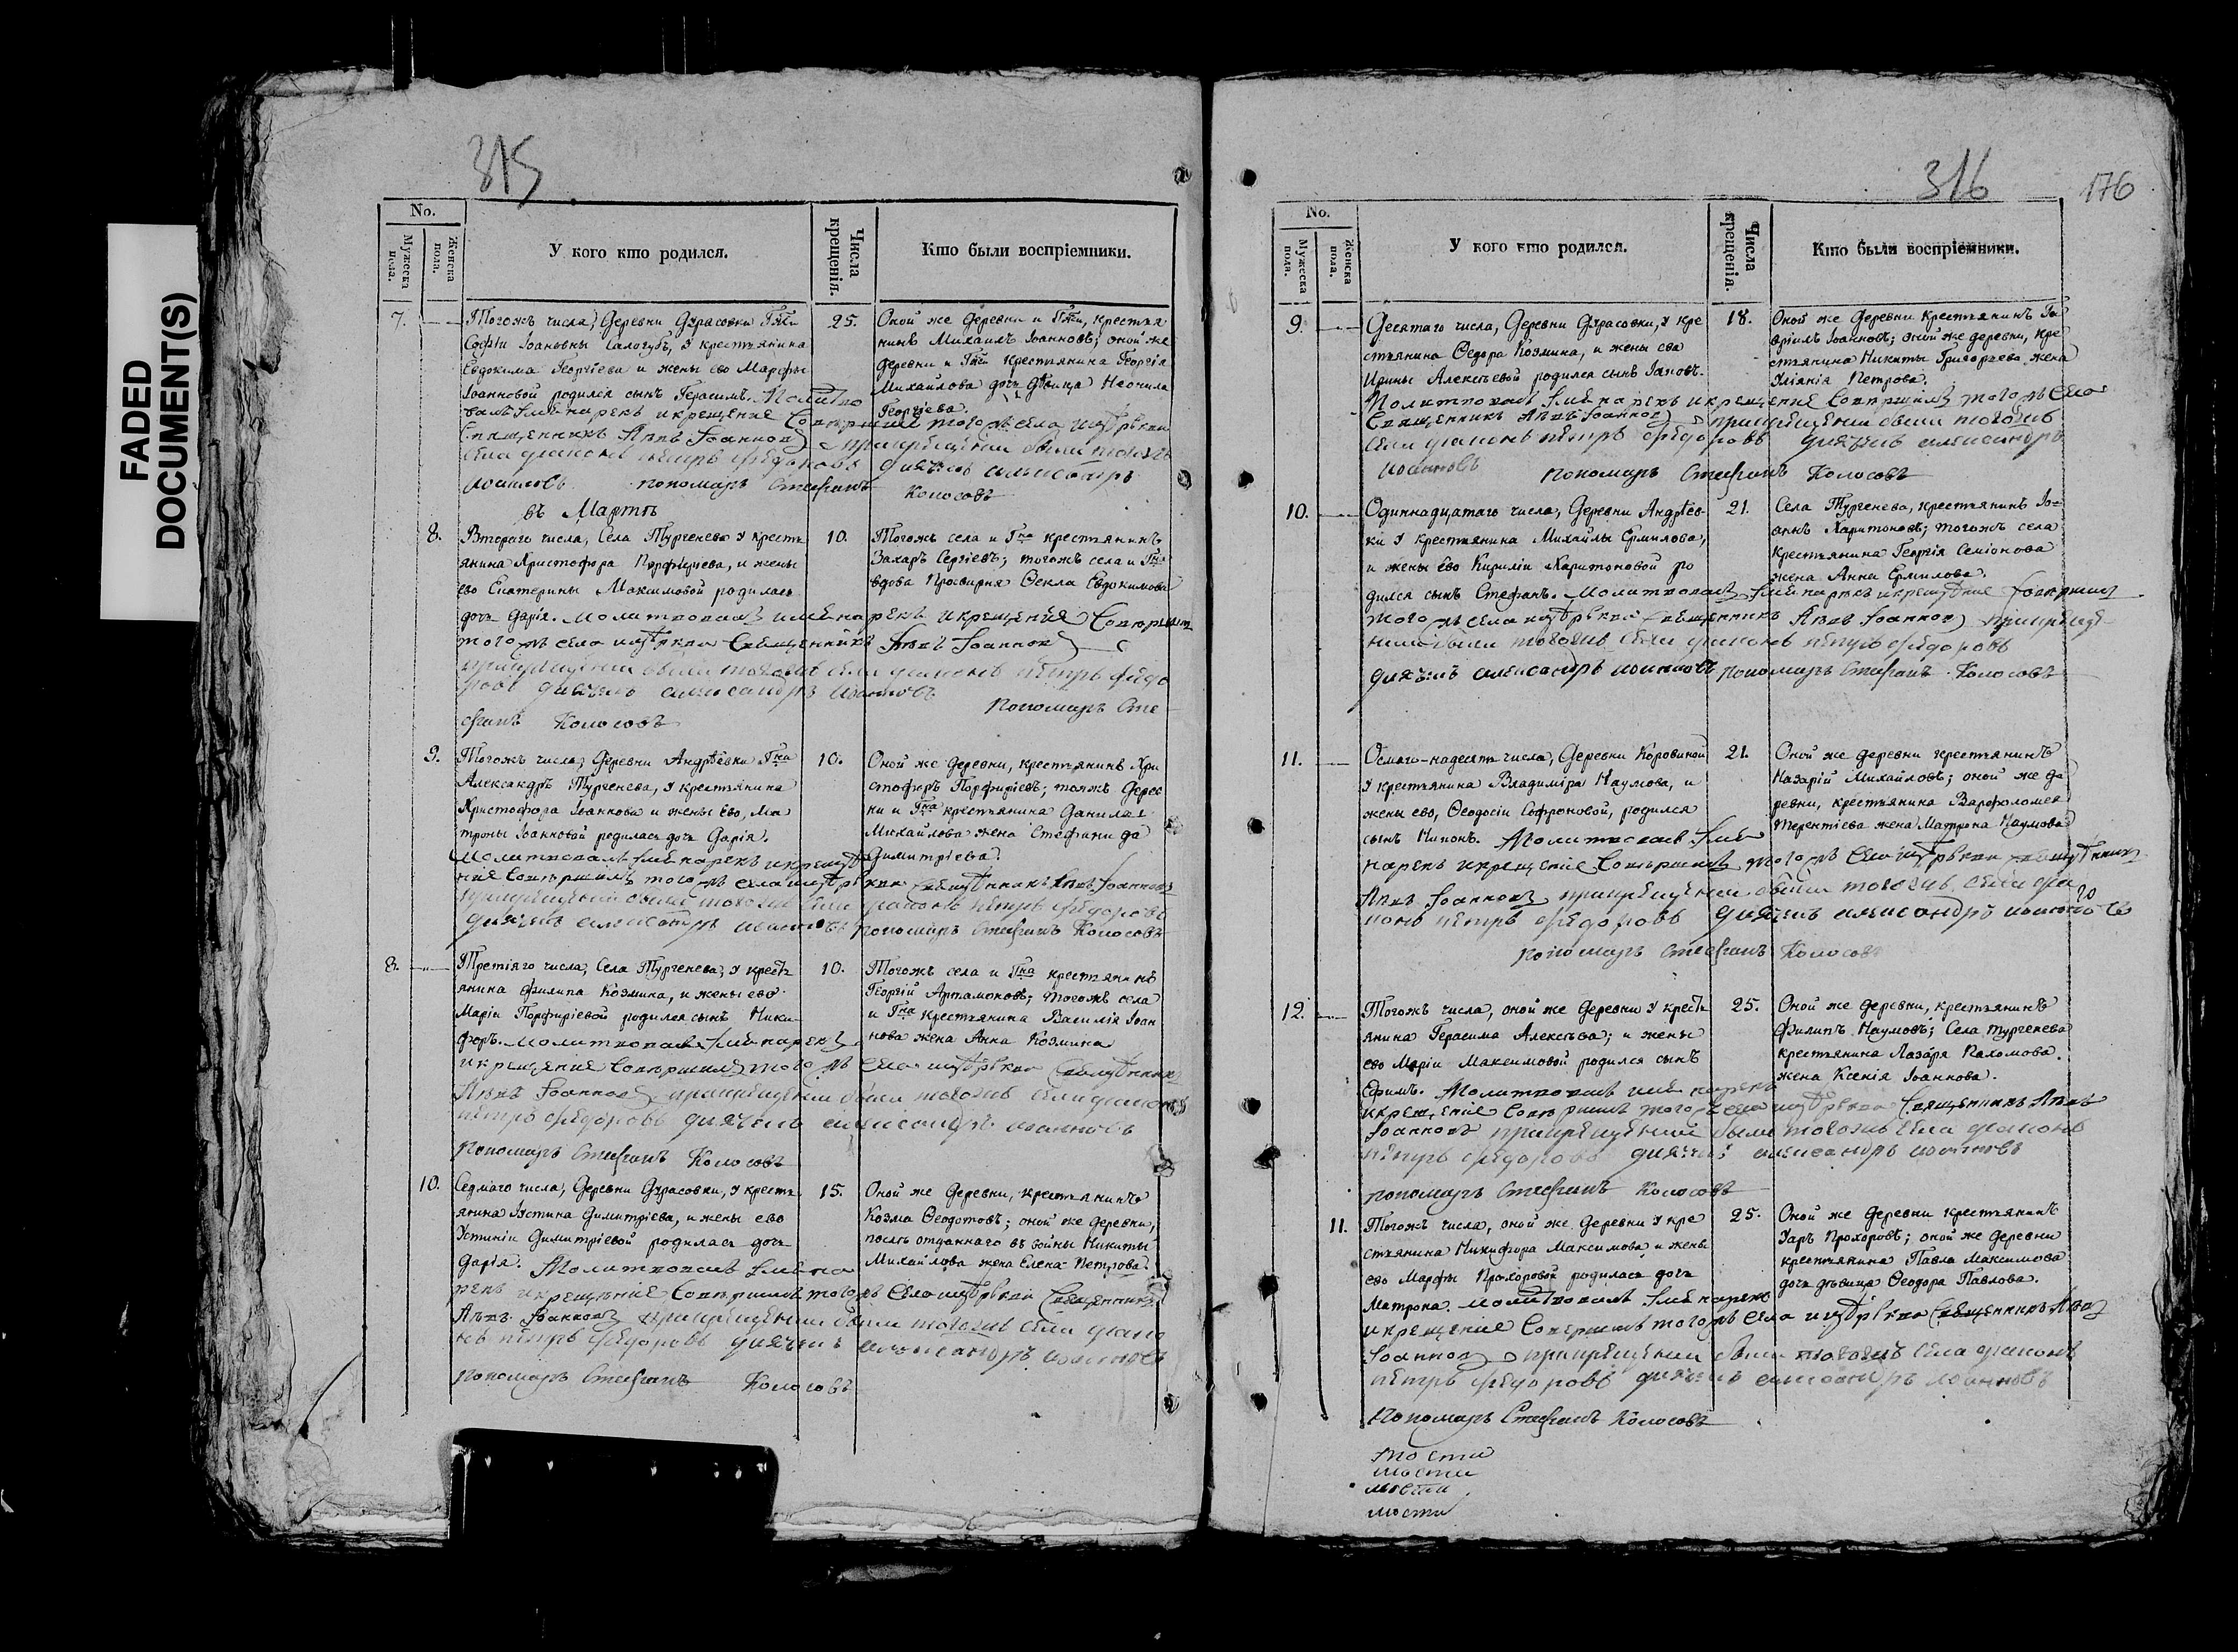 FADED
DOCUMENT(S)
315
No.
Мужеска пола.
Женска пола.
У кого кто родился.
Числа крещенія.
Кто были воспріемники.
7.
Тогожъ числа, Деревни Дурасовки Гжи
Софіи Іоанновны Салогубъ, у крестьянина
Евдокима Георгіева и жены ево Марфы
Іоанновой родился сынъ Герасимъ. Молитво
валъ имя нарекъ и крещение Совершилъ тогожъ села
Священникъ Іоанновъ при крещении были тогожъ
села диаконъ петръ федоровъ дьячекъ александръ
иоанновъ пономарь Стефанъ Колосовъ
25.
Оной же Деревни и Гжи, крестья
нинъ Михаилъ Іоанновъ; оной же
деревни и Гжи крестьянина Георгія
Михайлова дочь девица Неонила
Георгіева.
въ Мартѣ
8.
Втораго числа, Села Тургенева у кресть
янина Христофора Порфиріева, и жены
ево Екатерины Максимовой родилась
дочь Дарія. Молитвовалъ имя нарекъ и крещение Совершилъ
тогожъ села Священникъ Іоанновъ
при крещении были тогожъ села диаконъ петръ федо
ровъ дьячекъ александръ иоанновъ
пономарь Сте
фанъ Колосовъ
10.
Тогожъ села и Гна крестьянинъ
Захаръ Сергіевъ; тогожъ села и Гна
вдова Просвирня Ѳекла Евдокимова
9.
Тогожъ числа, Деревни Андрѣевки Гна
Александръ Тургенева, у крестьянина
Христофора Іоаннова и жены ево, Ма
троны Іоанновой родилась дочь Дарія.
Молитвовалъ имя нарекъ и креще
ние Совершилъ тогожъ села Священникъ Іоанновъ
при крещении были тогожъ села диаконъ петръ федоровъ
дьячекъ александръ иоанновъ пономарь Стефанъ Колосовъ
10.
Оной же Деревни, крестьянинъ Хри
стофоръ Порфиріевъ; тояжъ дерев
ни и Гна крестьянина Данила
Михайлова жена Стефанида
Димитріева.
8.
Третіяго числа, Села Тургенева, у кресть
янина Филипа Козмина, и жены ево
Маріи Порфиріевой родился сынъ Ники
форъ. Молитвовалъ имя нарекъ
и крещение Совершилъ тогожъ села Священникъ
Іоанновъ при крещении были тогожъ села диаконъ
петръ федоровъ дьячекъ александръ иоанновъ
пономарь Стефанъ Колосовъ
10.
Тогожъ села и Гна крестьянинъ
Георгій Артамоновъ; тогожъ села
и Гна крестьянина Василія Іоан
нова жена Анна Козмина
10.
Седмаго числа, Деревни Дурасовки, у кресть
янина Іустина Димитріева, и жены ево
Устиніи Димитріевой родилась дочь
Дарія. Молитвовалъ имя на
рекъ и крещение Совершилъ тогожъ села Священникъ
Іоанновъ при крещении были тогожъ села диако
нъ петръ федоровъ дьячекъ александръ иоанновъ
пономарь Стефанъ Колосовъ
15.
Оной же Деревни, крестьянинъ
Козма Ѳеодотовъ; оной же деревни,
послѣ отданнаго въ войны Никиты
Михайлова жена Елена Петрова.
316
176
No.
Мужеска пола.
Женска пола.
У кого кто родился.
Числа крещенія.
Кто были воспріемники.
9.
Десятаго числа, Деревни Дурасовки, у кре
стьянина Ѳедора Козмина, и жены ево
Ирины Алексѣевой родился сынъ Іаковъ.
Молитвовалъ имя нарекъ и крещение Совершилъ тогожъ села
Священникъ Іоанновъ при крещении были тогожъ
села диаконъ петръ федоровъ дьячекъ александръ
иоанновъ пономарь Стефанъ Колосовъ
18.
Оной же Деревни крестьянинъ Га
вріилъ Іоанновъ; оной же деревни, кре
стьянина Никиты Григорьева жена
Уліянія Петрова.
10.
Одиннадцатаго числа, Деревни Андрѣев
ки у крестьянина Михайлы Ермилова,
и жены ево Кириліи Харитоновой ро
дился сынъ Стефанъ. Молитвовалъ имя нарекъ и крещение Совершилъ
тогожъ села Священникъ Іоанновъ при креще
нии были тогожъ села диаконъ петръ федоровъ
дьячекъ александръ иоанновъ пономарь Стефанъ Колосовъ
21.
Села Тургенева, крестьянинъ Іо
аннъ Харитоновъ; тогожъ села
крестьянина Георгія Семіонова
жена Анна Ермилова.
11.
Осмаго-надесять числа, Деревни Коровиной
у крестьянина Владиміра Наумова, и
жены ево, Ѳеодосіи Софроновой, родился
сынъ Нифонъ. Молитвовалъ имя
нарекъ и крещение Совершилъ тогожъ села Священникъ
Іоанновъ при крещении были тогожъ села диа
конъ петръ федоровъ дьячекъ александръ иоанновъ
пономарь Стефанъ Колосовъ
21.
Оной же деревни крестьянинъ
Назарій Михайловъ; оной же де
ревни, крестьянина Варфоломея
Терентіева жена Матрона Наумова
12.
Тогожъ числа, оной же Деревни у кресть
янина Герасима Алексѣева; и жены
ево Маріи Максимовой родился сынъ
Ефимъ. Молитвовалъ имя нарекъ
и крещение Совершилъ тогожъ села Священникъ
Іоанновъ при крещении были тогожъ села диаконъ
петръ федоровъ дьячекъ александръ иоанновъ
пономарь Стефанъ Колосовъ
25.
Оной же деревни, крестьянинъ
Филипъ Наумовъ; Села Тургенева
крестьянина Лазаря Пахомова
жена Ксенія Іоаннова.
11.
Тогожъ числа, оной же Деревни у кре
стьянина Никифора Максимова и жены
ево Марфы Прохоровой родилась дочь
Матрона. Молитвовалъ имя нарекъ
и крещение Совершилъ тогожъ села Священникъ
Іоанновъ при крещении были тогожъ села диаконъ
петръ федоровъ дьячекъ александръ иоанновъ
пономарь Стефанъ Колосовъ
25.
Оной же Деревни крестьянинъ
Уаръ Прохоровъ; оной же деревни
крестьянина Павла Максимова
дочь дѣвица Ѳеодора Павлова.
мости
мости
мости
мости